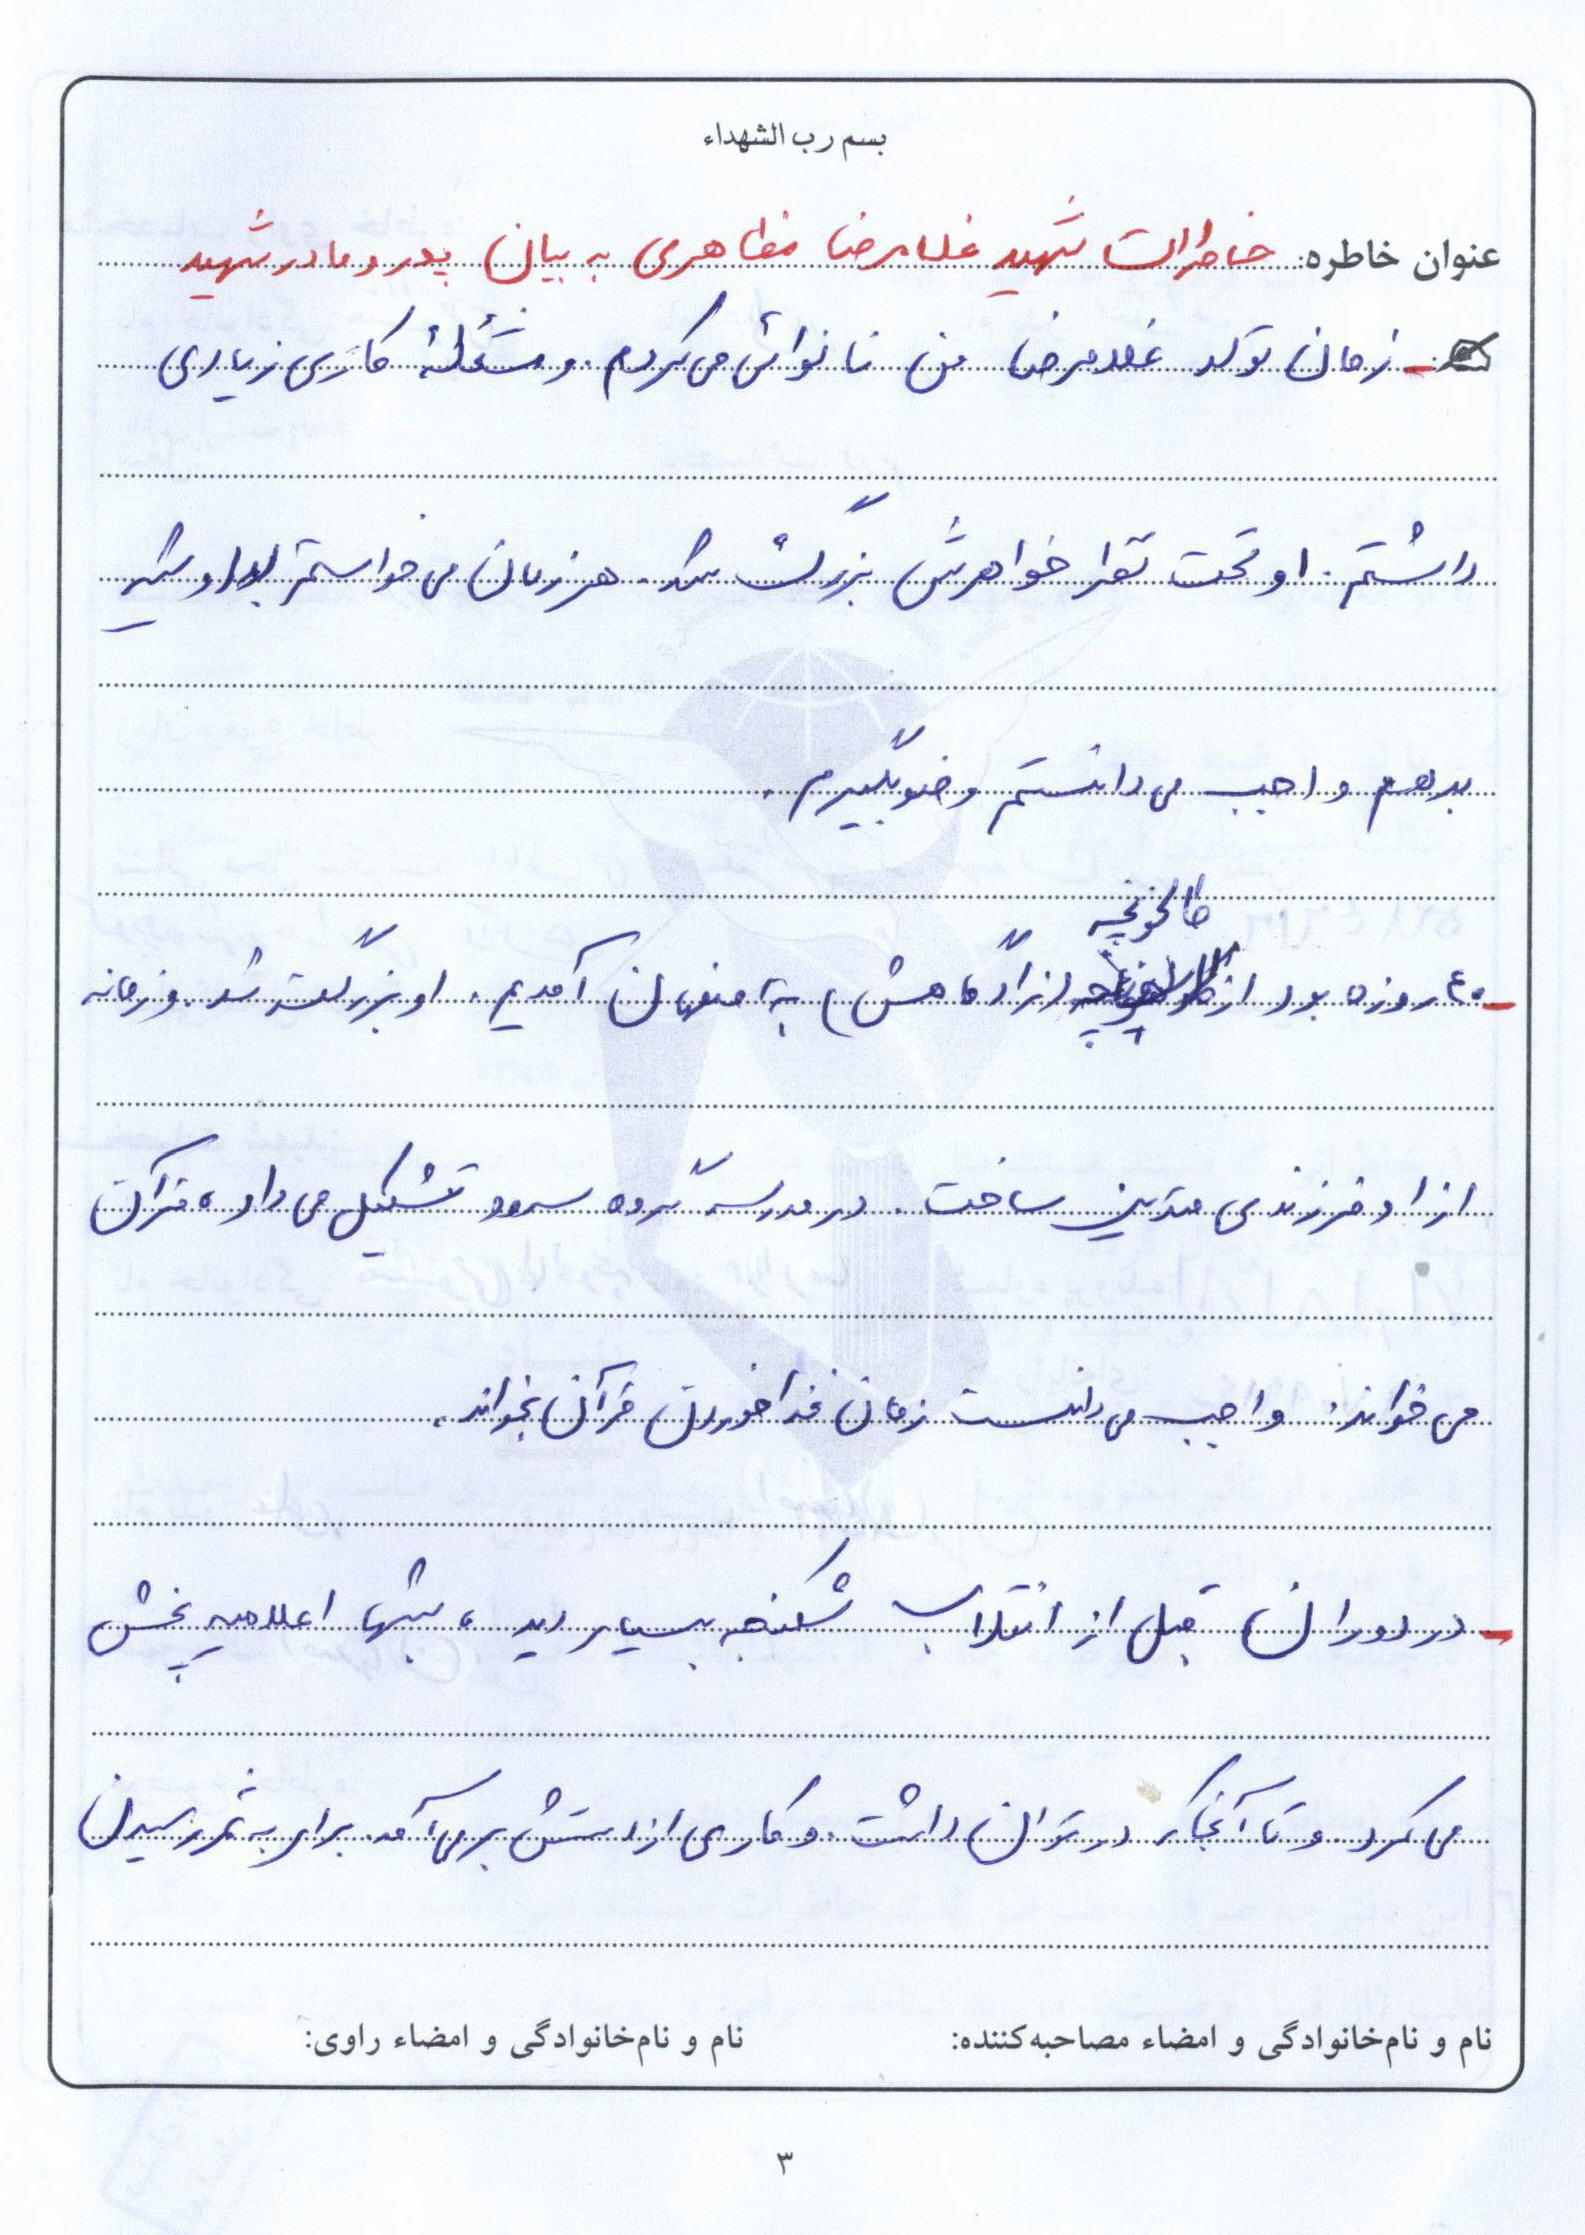 بسم رب الشهداء
عنوان خاطره: خاطرات شهید غلامرضا مظاهری به بیان پدر و مادر شهید
- زمان تولد غلامرضا من نانوائی می‌کردم. و مشغلهٔ کاری زیادی
داشتم. او تحت نظر خواهرش بزرگ شد. هر زمان می‌خواستم به او شیر
بدهم واجب می‌دانستم وضو بگیرم.
طالخونچه
- ۴۰ روزه بود از (زادگاهش) به اصفهان آمدیم. او بزرگ شد. و زمانه
از او فرزندی متدین ساخت. در مدرسه گروه سرود تشکیل می‌داد، قرآن
می‌خواند. واجب می‌دانست زمان غذا خوردن قرآن بخواند.
- در دوران قبل از انقلاب شکنجه بسیار دید، شبها اعلامیه پخش
می‌کرد. و تا آنجا که در توان داشت. و کاری از دستش برمی‌آمد. برای به ثمر رسیدن
نام و نام‌خانوادگی و امضاء مصاحبه‌کننده: نام و نام‌خانوادگی و امضاء راوی:
۳